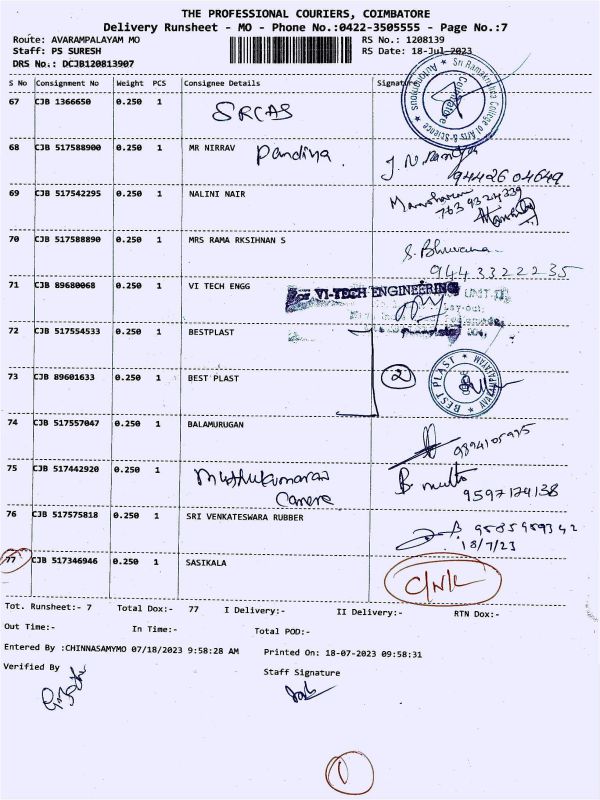 THE PROFESSIONAL COURIERS, COIMBATORE
Delivery Runsheet - MO - Phone No.:0422-3505555 - Page No.:7
Route: AVARAMPALAYAM MO RS No.: 1208139
Staff: PS SURESH RS Date: 18-Jul-2023
DRS No.: DCJB120813907
S No Consignment No Weight PCS Consignee Details Signature
67 CJB 1366650 0.250 1 SRCAS
Sri Ramakrishna College of Arts & Science ★ Autonomous ★
Coimbatore
68 CJB 517588900 0.250 1 MR NIRRAV Pandiya
9442604649
69 CJB 517542295 0.250 1 NALINI NAIR
7639324339
70 CJB 517588890 0.250 1 MRS RAMA RKSIHNAN S S. Bhuvana
9443322235
71 CJB 89680068 0.250 1 VI TECH ENGG
For VI-TECH ENGINEERING UNIT II
72 CJB 517554533 0.250 1 BESTPLAST
73 CJB 89601633 0.250 1 BEST PLAST 2
★ BEST PLAST ★
74 CJB 517557047 0.250 1 BALAMURUGAN
9894105975
75 CJB 517442920 0.250 1 Muthukumaran
B muthu
9597174138
76 CJB 517575818 0.250 1 SRI VENKATESWARA RUBBER
9585959342
18/7/23
77 CJB 517346946 0.250 1 SASIKALA C/N/L
Tot. Runsheet:- 7 Total Dox:- 77 I Delivery:- II Delivery:- RTN Dox:-
Out Time:- In Time:- Total POD:-
Entered By :CHINNASAMYMO 07/18/2023 9:58:28 AM Printed On: 18-07-2023 09:58:31
Verified By Staff Signature
1